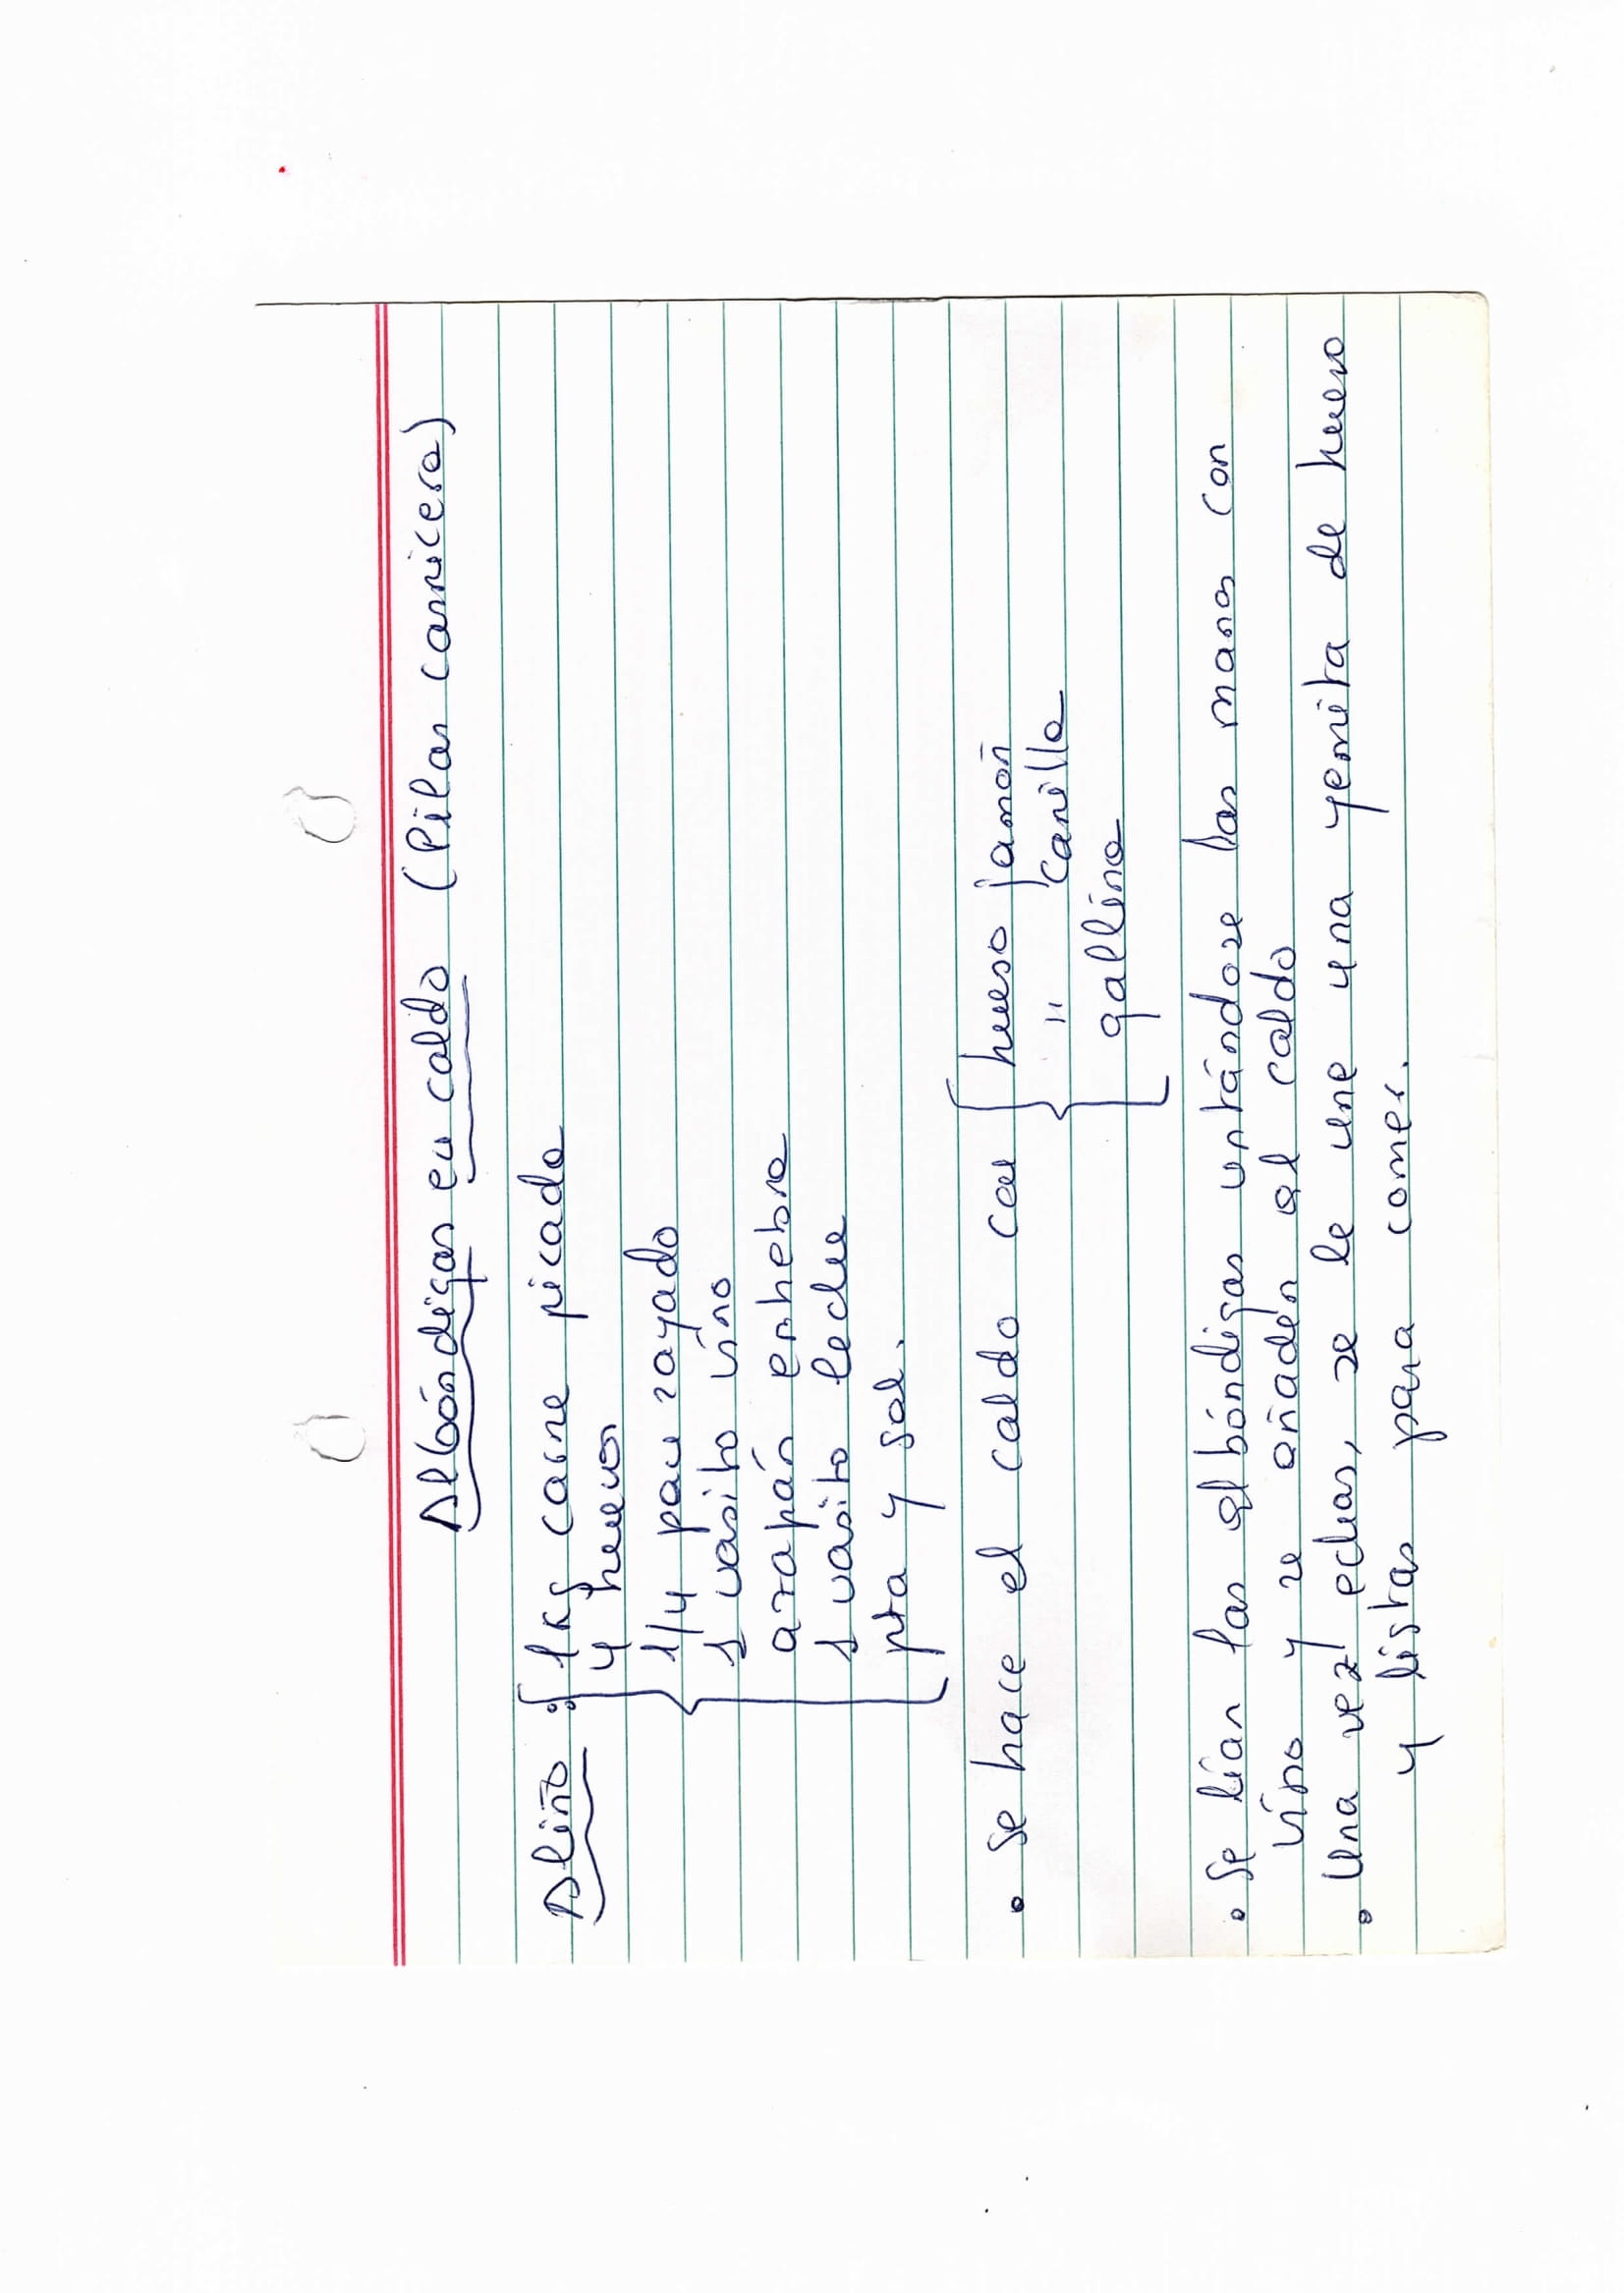 Albóndigas en caldo (Pilar carnicera)
Aliño: 1 Kg carne picada
4 huevos
1/4 pan rayado
1 vasito vino
azapán en hebra
1 vasito leche
pta y sal.
• Se hace el caldo con hueso jamón
" canilla
gallina
• Se lían las albóndigas untándose las manos con
vino y se añaden al caldo
• Una vez echas, se le une una yemita de huevo
y listas para comer.